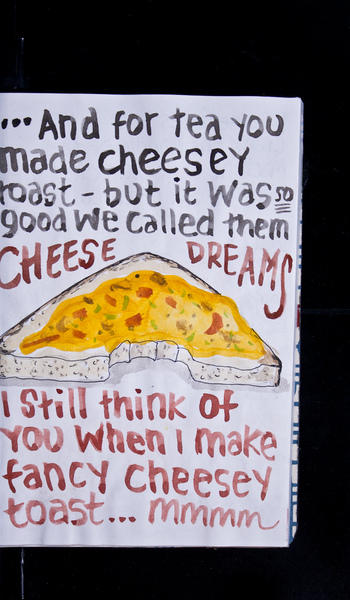 ...And for tea you
made cheesey
toast - but it was so
good we called them
CHEESE DREAMS
I still think of
you when I make
fancy cheesey
toast... mmmm